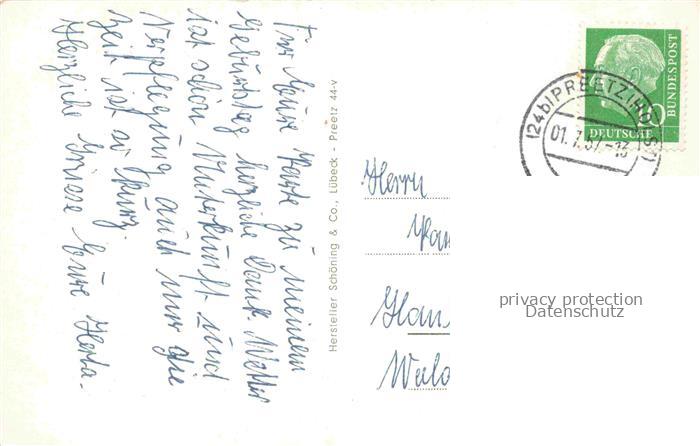 Für Eure Karte zu meinem
Geburtstag herzliche Dank. Wetter
ist schön Unterkunft und
Verpflegung auch nur die
Zeit ist zu kurz.
Herzliche Grüsse Eure Herta.
Hersteller Schöning & Co., Lübeck - Preetz 44-v
DEUTSCHE
BUNDESPOST
10
(24b) PREETZ (HOLST)
01.7.57.-13
Herrn
Han
privacy protection
Datenschutz